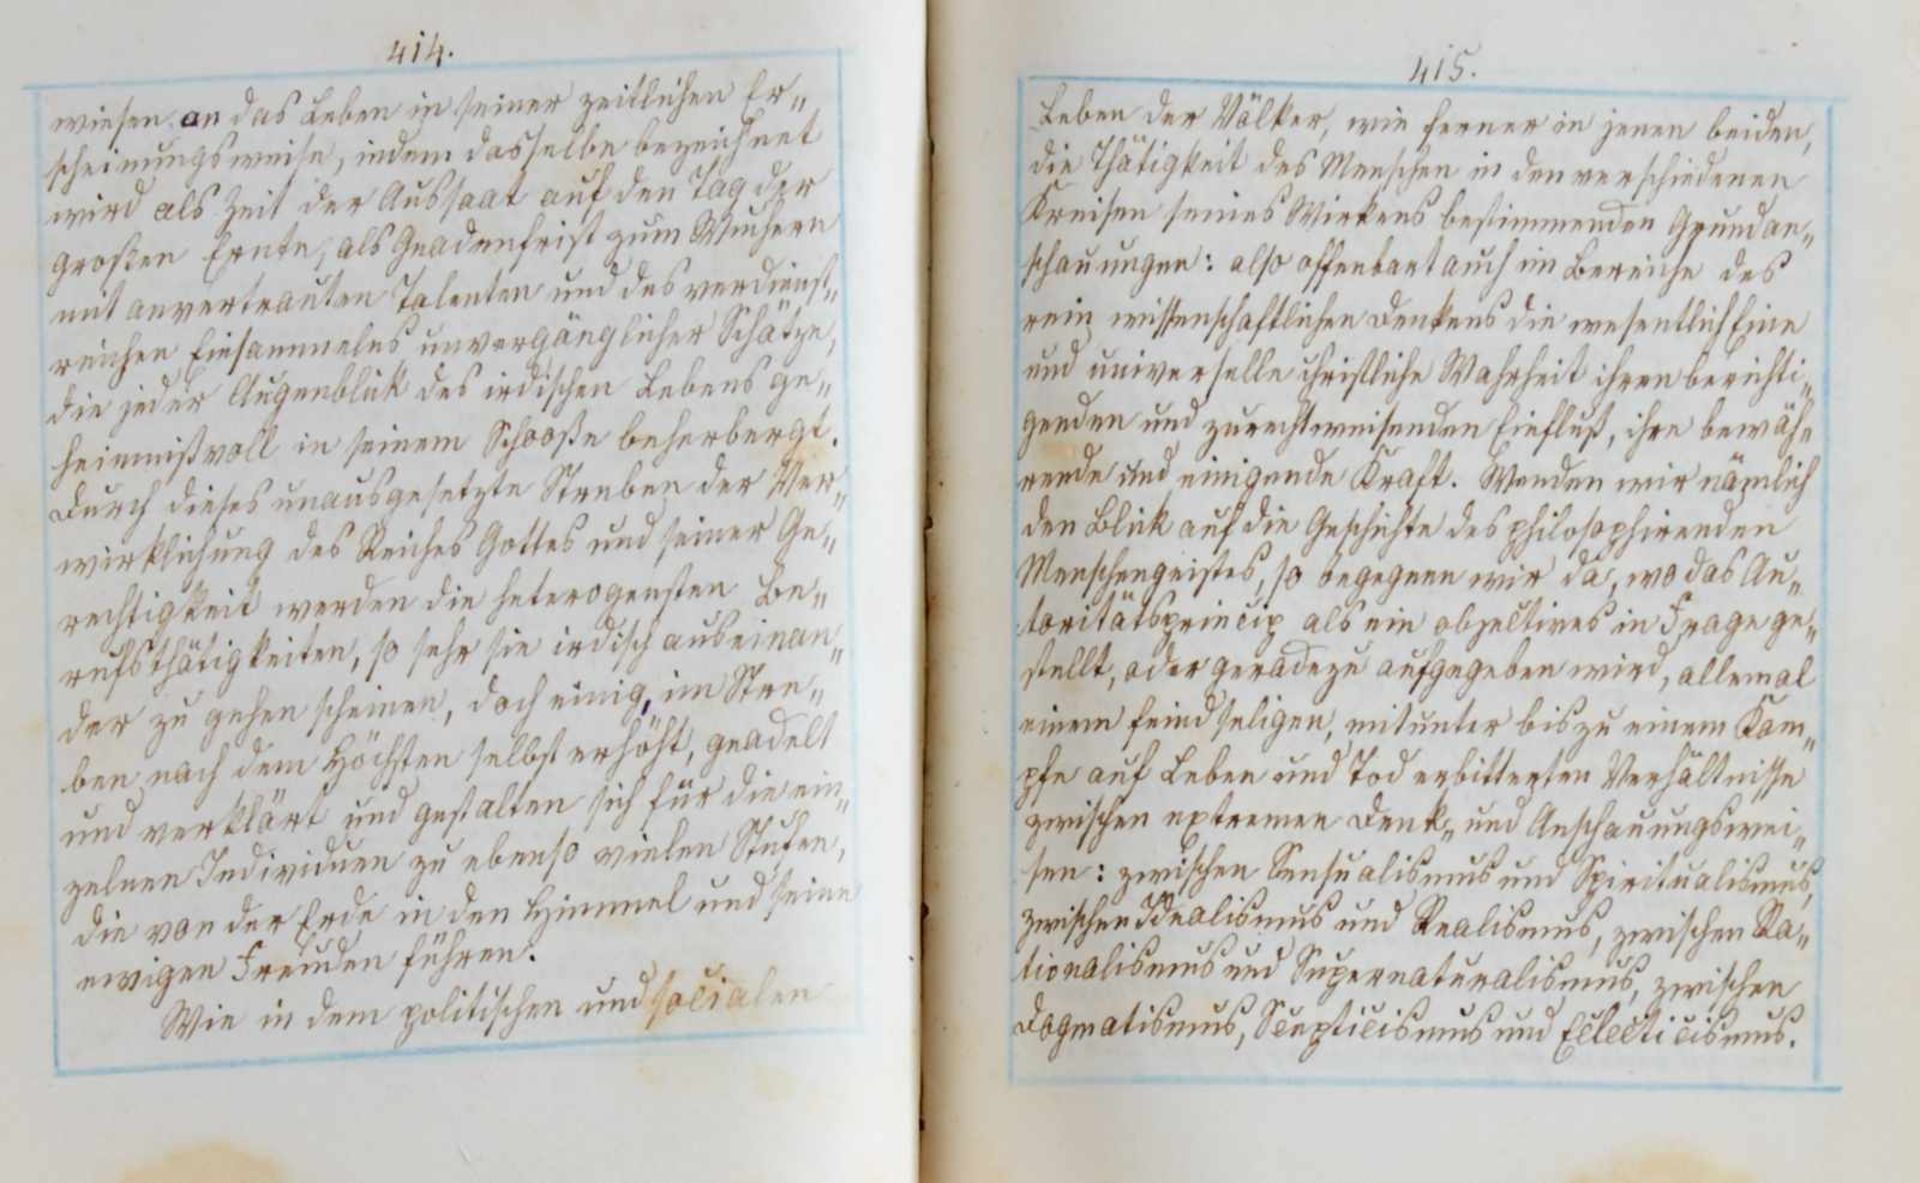 414.
wiesen an das Leben in seiner zeitlichen Er„
scheinungsweise, indem dasselbe bezeichnet
wird als Zeit der Aussaat auf den Tag der
großen Ernte, als Gnadenfrist zum Wuchern
mit anvertrauten Talenten und des verdienst„
reichen Einsammelns unvergänglicher Schätze,
die jeder Augenblick des irdischen Lebens ge„
heimnißvoll in seinem Schooße beherbergt.
Durch dieses unausgesetzte Streben der Ver„
wirklichung des Reiches Gottes und seiner Ge„
rechtigkeit werden die heterogensten Be„
rufsthätigkeiten, so sehr sie irdisch auseinan„
der zu gehen scheinen, doch einig, im Stre„
ben nach dem Höchsten selbst erhöht, geadelt
und verklärt und gestalten sich für die ein„
zelnen Individuen zu ebenso vielen Stufen,
die von der Erde in den Himmel und seine
ewigen Freuden führen.
Wie in dem politischen und socialen
415.
Leben der Völker, wie ferner in jenen beiden,
die Thätigkeit des Menschen in den verschiedenen
Kreisen seines Wirkens bestimmenden Grundan„
schauungen: also offenbart auch im Bereiche des
rein wissenschaftlichen Denkens die wesentlich Eine
und universelle christliche Wahrheit ihren berichti„
genden und zurechtweisenden Einfluß, ihre bewäh„
rende und einigende Kraft. Wenden wir nämlich
den Blick auf die Geschichte des philosophirenden
Menschengeistes, so begegnen wir da, wo das Au„
toritätsprincip als ein objectives in Frage ge„
stellt, oder geradezu aufgegeben wird, allemal
einem feindseligen, mitunter bis zu einem Kam„
pfe auf Leben und Tod erbitterten Verhältnisse
zwischen extremen Denk„ und Anschauungswei„
sen: zwischen Sensualismus und Spiritualismus,
zwischen Idealismus und Realismus, zwischen Ra„
tionalismus und Supernaturalismus, zwischen
Dogmatismus, Scepticismus und Eclecticismus.